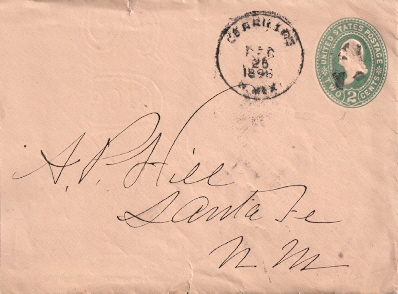 CERRILLOS
DEC
26
1896
N. MEX.
UNITED STATES POSTAGE
TWO 2 CENTS
A. P. Hill
Santa Fe
N. M